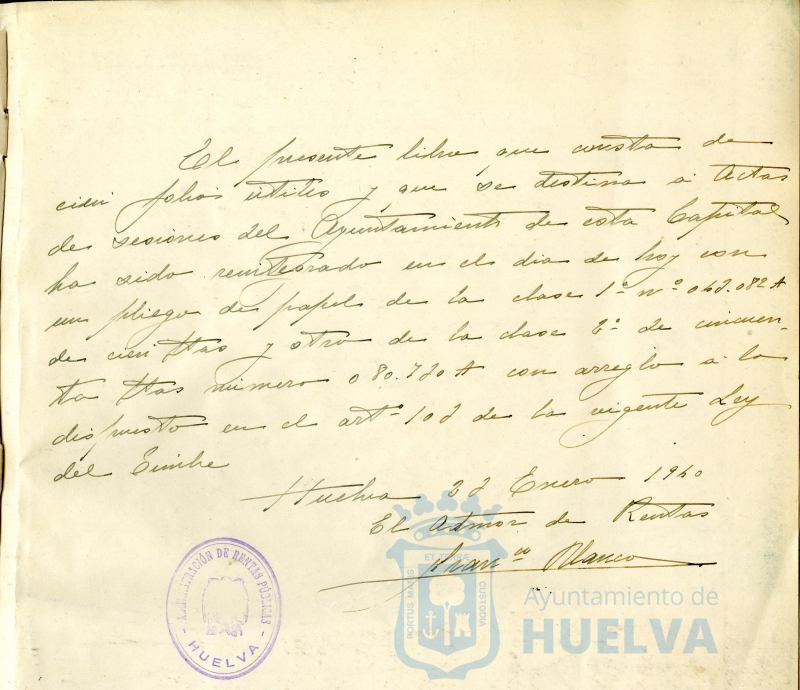 El presente libro que consta de
cien folios útiles y que se destina a Actas
de sesiones del Ayuntamiento de esta Capital
ha sido reintegrado en el dia de hoy con
un pliego de papel de la clase 1ª nº
de cien ptas y otro de la clase 2ª de cincuen-
ta ptas número con arreglo a lo
dispuesto en el artº de la vigente Ley
del Timbre
Huelva Enero 1940
El Admor de Rentas
Franco Blanco
ADMINISTRACIÓN DE RENTAS PÚBLICAS
- HUELVA -
ET TERRÆ
PORTUS MARIS
CUSTODIA
Ayuntamiento de
HUELVA